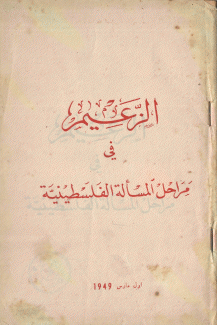 الزعيم
في
مراحل المسألة الفلسطينية
اول مارس 1949